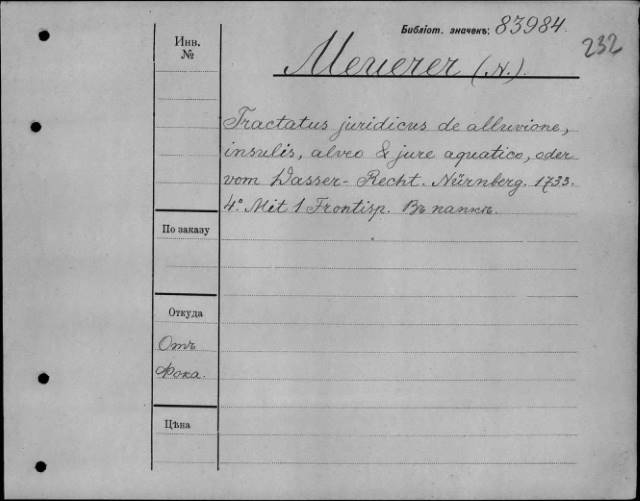 Библіот. значекъ: 83984.
232
Инв.
№
Meuerer (N.).
Tractatus juridicus de alluvione,
insulis, alveo & jure aquatico, oder
vom Wasser-Recht. Nürnberg. 1733.
4°. Mit 1 Frontisp. Въ папкѣ.
По заказу
Откуда
Отъ
Фока.
Цѣна